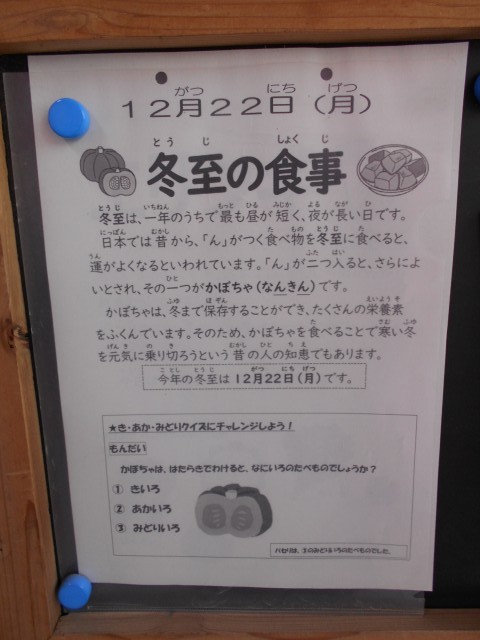 12月22日（月）
冬至の食事
冬至は、一年のうちで最も昼が短く、夜が長い日です。
日本では昔から、「ん」がつく食べ物を冬至に食べると、
運がよくなるといわれています。「ん」が二つ入ると、さらによ
いとされ、その一つがかぼちゃ（なんきん）です。
かぼちゃは、冬まで保存することができ、たくさんの栄養素
をふくんでいます。そのため、かぼちゃを食べることで寒い冬
を元気に乗り切ろうという昔の人の知恵でもあります。
今年の冬至は12月22日（月）です。
★き・あか・みどりクイズにチャレンジしよう！
もんだい
かぼちゃは、はたらきでわけると、なにいろのたべものでしょうか？
① きいろ
② あかいろ
③ みどりいろ
パセリは、③のみどりいろのたべものでした。